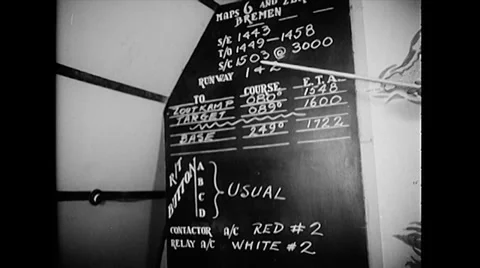 MAPS 6 AND
BREMEN
S/E 1443
T/O 1449-1458
S/C 1503 @ 3000
RUNWAY 142
TO COURSE E.T.A.
ZOOTKAMP 080° 1548
TARGET 089° 1600
BASE 249° 1722
R/T BUTTON A B C D USUAL
CONTACTOR A/C RED #2
RELAY A/C WHITE #2